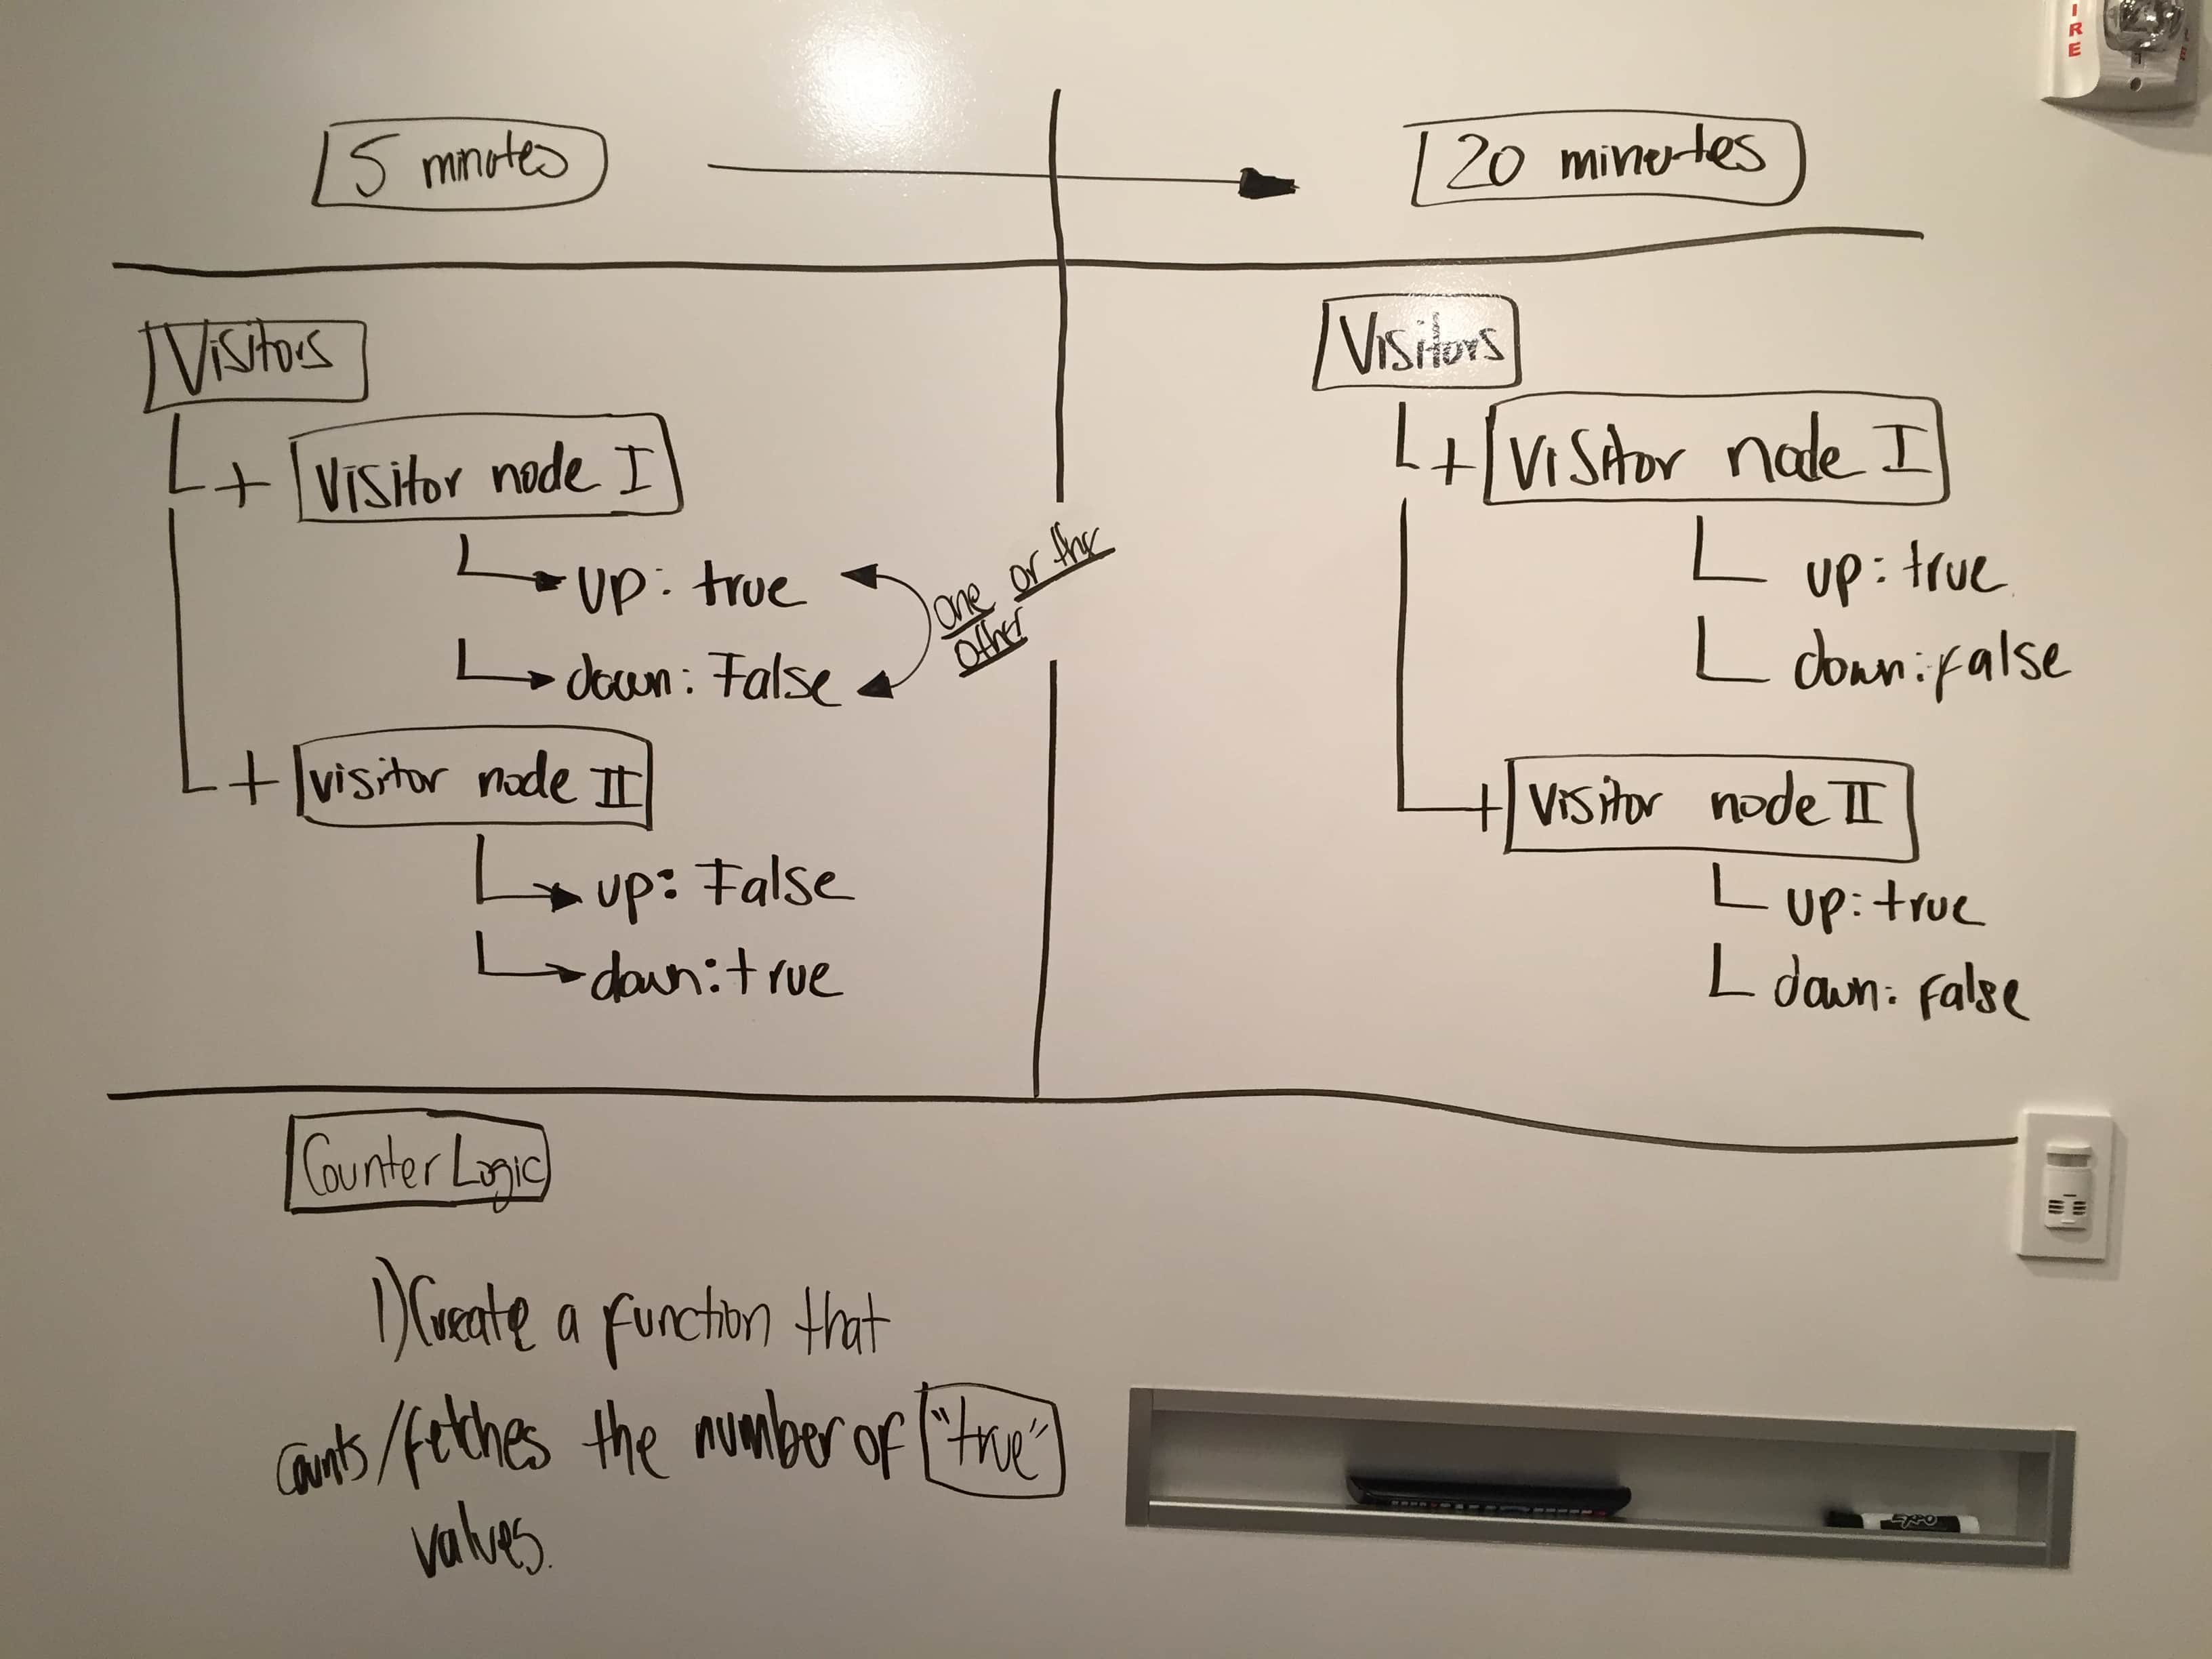 IRE
5 minutes
20 minutes
Visitors
+ Visitor node I
up: true
down: False
one or the
other
+ visitor node II
up: False
down: true
Visitors
+ Visitor node I
up: true
down: false
+ Visitor node II
up: true
down: false
Counter Logic
1) Create a function that
counts/fetches the number of "true"
values.